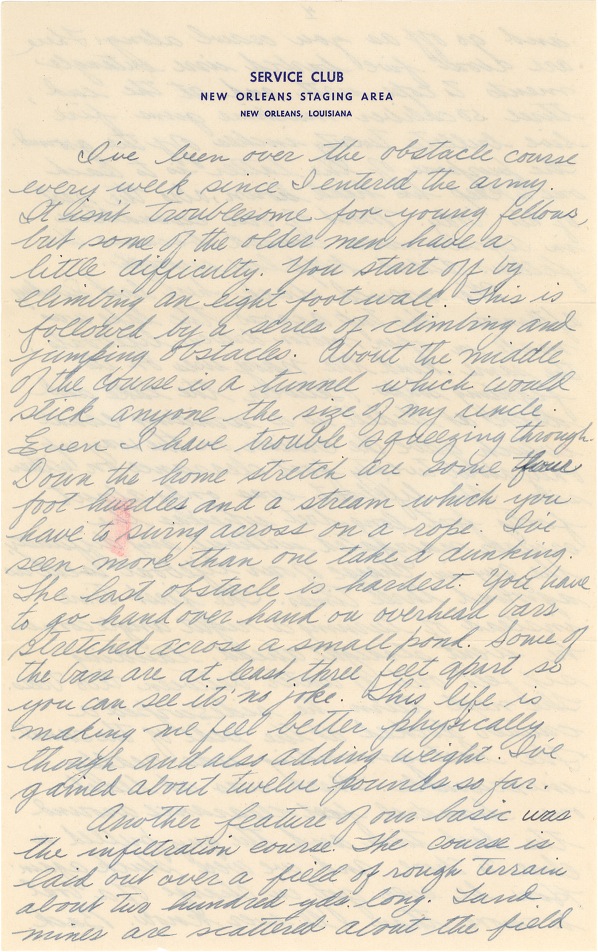 SERVICE CLUB
NEW ORLEANS STAGING AREA
NEW ORLEANS, LOUISIANA
I've been over the obstacle course
every week since I entered the army.
It isn't troublesome for young fellows,
but some of the older men have a
little difficulty. You start off by
climbing an eight foot wall. This is
followed by a series of climbing and
jumping obstacles. About the middle
of the course is a tunnel which would
stick anyone the size of my uncle.
Even I have trouble squeezing through.
Down the home stretch are some four
foot hurdles and a stream which you
have to swing across on a rope. I've
seen more than one take a dunking.
The last obstacle is hardest. You have
to go hand over hand on overhead bars
stretched across a small pond. Some of
the bars are at least three feet apart so
you can see it's no joke. This life is
making me feel better physically
though and also adding weight. I've
gained about twelve pounds so far.
Another feature of our basic was
the infiltration course. The course is
laid out over a field of rough terrain
about two hundred yds. long. Land
mines are scattered about the field